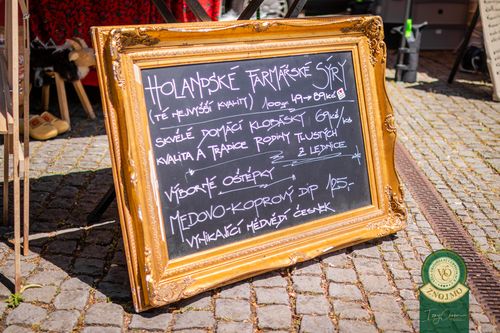 HOLANDSKÉ FARMÁŘSKÉ SÝRY
(TÉ NEJVYŠŠÍ KVALITY) 100gr 49→89Kč
SKVĚLÉ DOMÁCÍ KLOBÁSKY 69Kč/ks
KVALITA A TRADICE RODINY TLUSTÝCH
Z LEDNICE
VÝBORNÉ OŠTĚPKY
MEDOVO-KOPROVÝ DIP 125,-
VYNIKAJÍCÍ MEDVĚDÍ ČESNEK
VOC
ZNOJMO